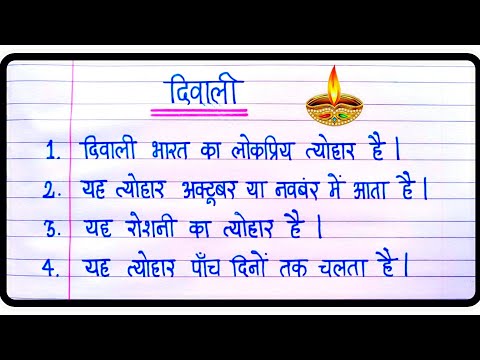 दिवाली
1. दिवाली भारत का लोकप्रिय त्योहार है |
2. यह त्योहार अक्टूबर या नवबंर में आता है |
3. यह रोशनी का त्योहार है |
4. यह त्योहार पाँच दिनों तक चलता है |